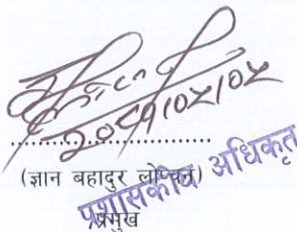 २०८१/०२/०२
(ज्ञान बहादुर लोप्चन)
प्रशासकीय अधिकृत
प्रमुख